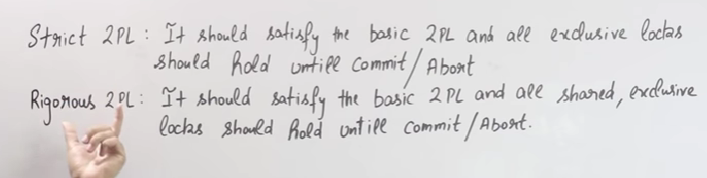 Strict 2PL : It should satisfy the basic 2PL and all exclusive locks
should hold untill Commit/Abort
Rigorous 2PL : It should satisfy the basic 2PL and all shared, exclusive
locks should hold untill Commit/Abort.